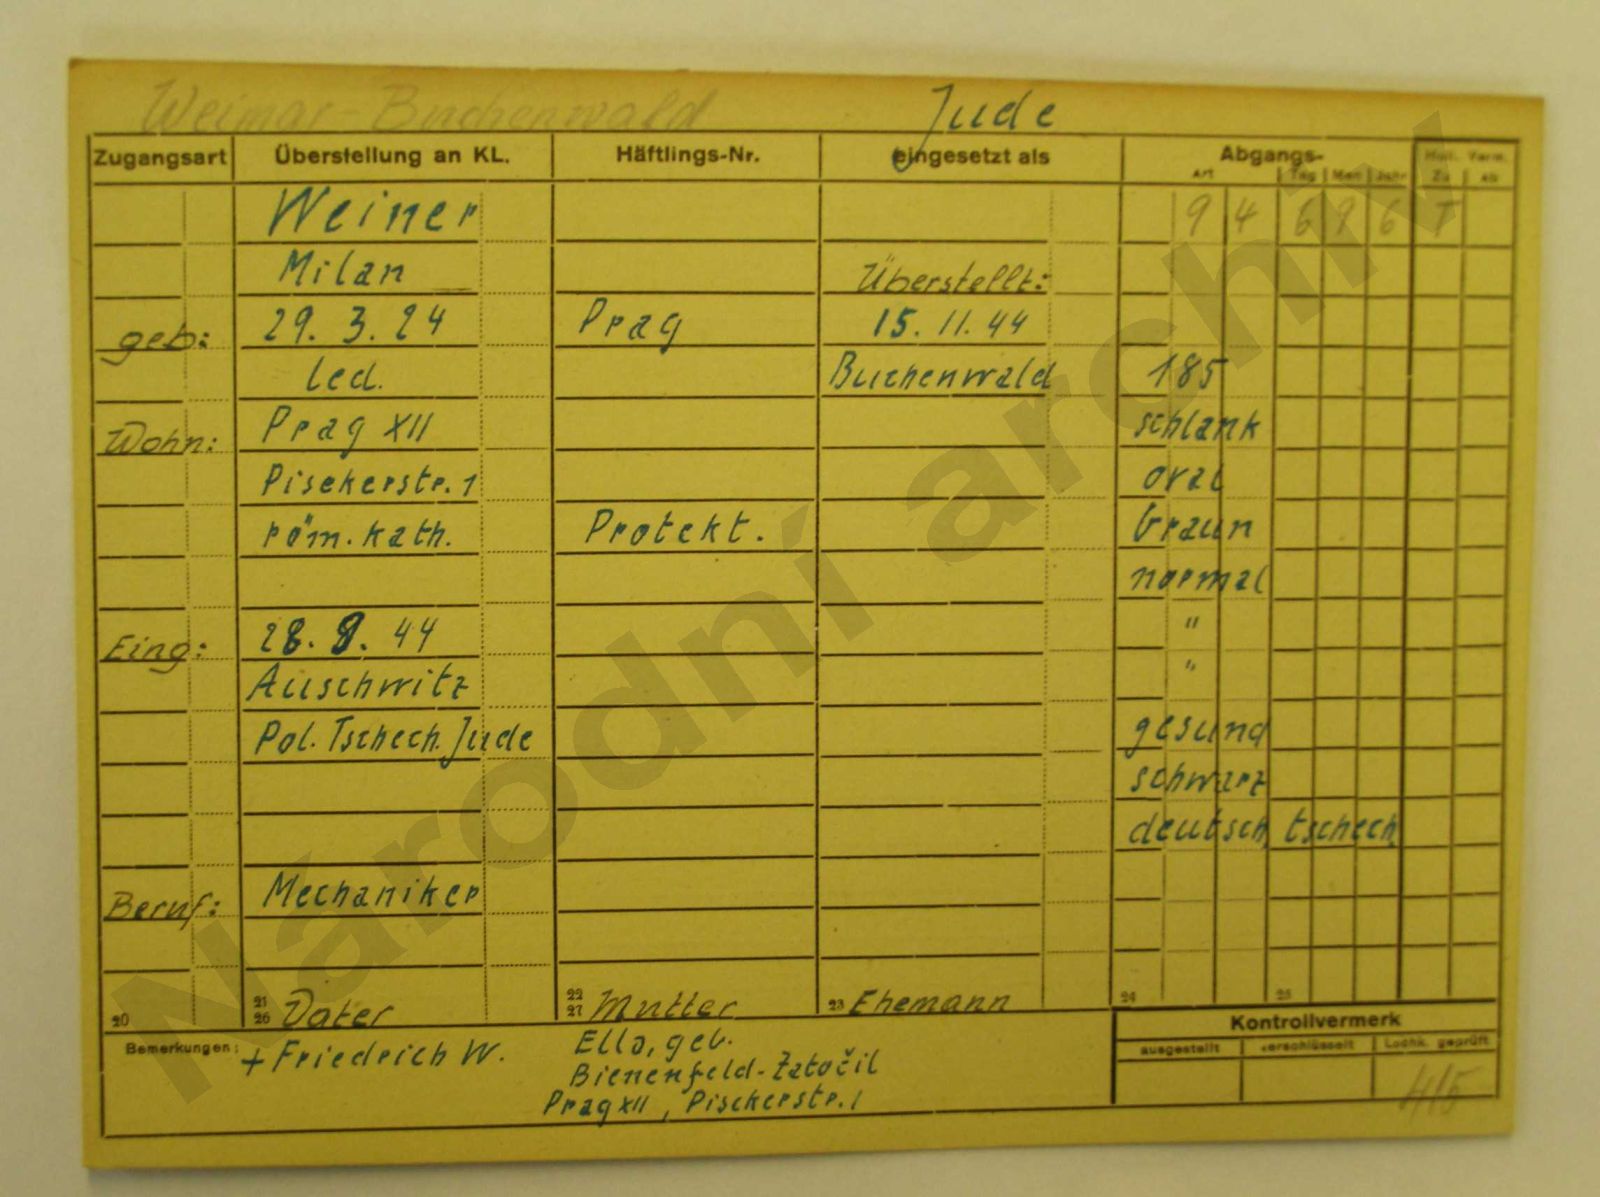 Weimar-Buchenwald Jude
Zugangsart Überstellung an KL. Häftlings-Nr. eingesetzt als Abgangs- Holl. Verm.
Art Tag Mon Jahr Zu Ab
Weiner 9 4 6 9 6 T
Milan Überstellt:
geb: 29. 3. 24 Prag 15. 11. 44
led. Buchenwald 185
Wohn: Prag XII schlank
Pisekerstr. 1 oval
röm. kath. Protekt. braun
normal
Eing: 28. 9. 44 "
Auschwitz "
Pol. Tschech. Jude gesund
schwarz
deutsch, tschech.
Beruf: Mechaniker
20 21 26 Vater 22 27 Mutter 23 Ehemann 24 25
Bemerkungen: + Friedrich W. Ella, geb.
Bienenfeld-Zatočil
Prag XII, Pisekerstr. 1
Kontrollvermerk
ausgestellt verschlüsselt Lochk. geprüft
415
Národní archiv